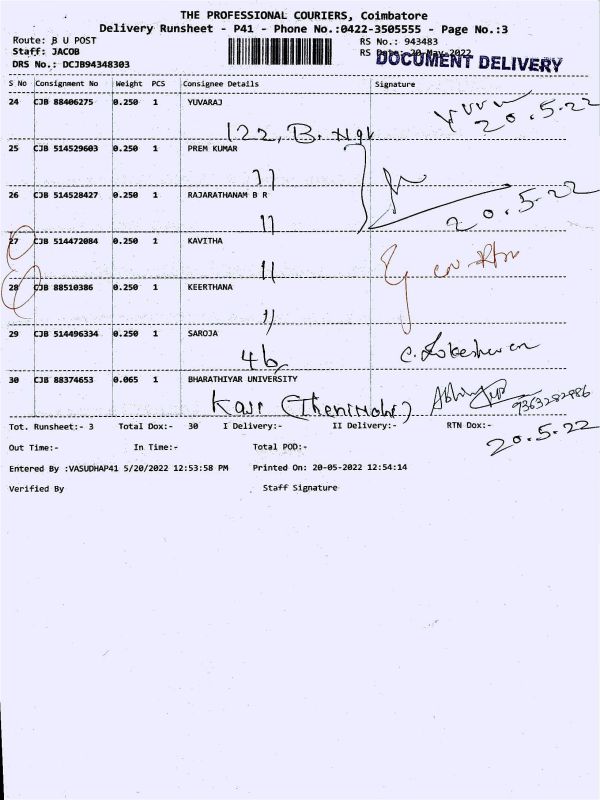 THE PROFESSIONAL COURIERS, Coimbatore
Delivery Runsheet - P41 - Phone No.:0422-3505555 - Page No.:3
Route: B U POST RS No.: 943483
Staff: JACOB RS Date: 20-May-2022
DOCUMENT DELIVERY
DRS No.: DCJB94348303
S No Consignment No Weight PCS Consignee Details Signature
24 CJB 88406275 0.250 1 YUVARAJ
20.5.22
122, B.
25 CJB 514529603 0.250 1 PREM KUMAR
11
26 CJB 514528427 0.250 1 RAJARATHANAM B R
20.5-22
11
27 CJB 514472084 0.250 1 KAVITHA
11
28 CJB 88510386 0.250 1 KEERTHANA
11
29 CJB 514496334 0.250 1 SAROJA
46
30 CJB 88374653 0.065 1 BHARATHIYAR UNIVERSITY
9363282986
Tot. Runsheet:- 3 Total Dox:- 30 I Delivery:- II Delivery:- RTN Dox:-
20.5.22
Out Time:- In Time:- Total POD:-
Entered By :VASUDHAP41 5/20/2022 12:53:58 PM Printed On: 20-05-2022 12:54:14
Verified By Staff Signature